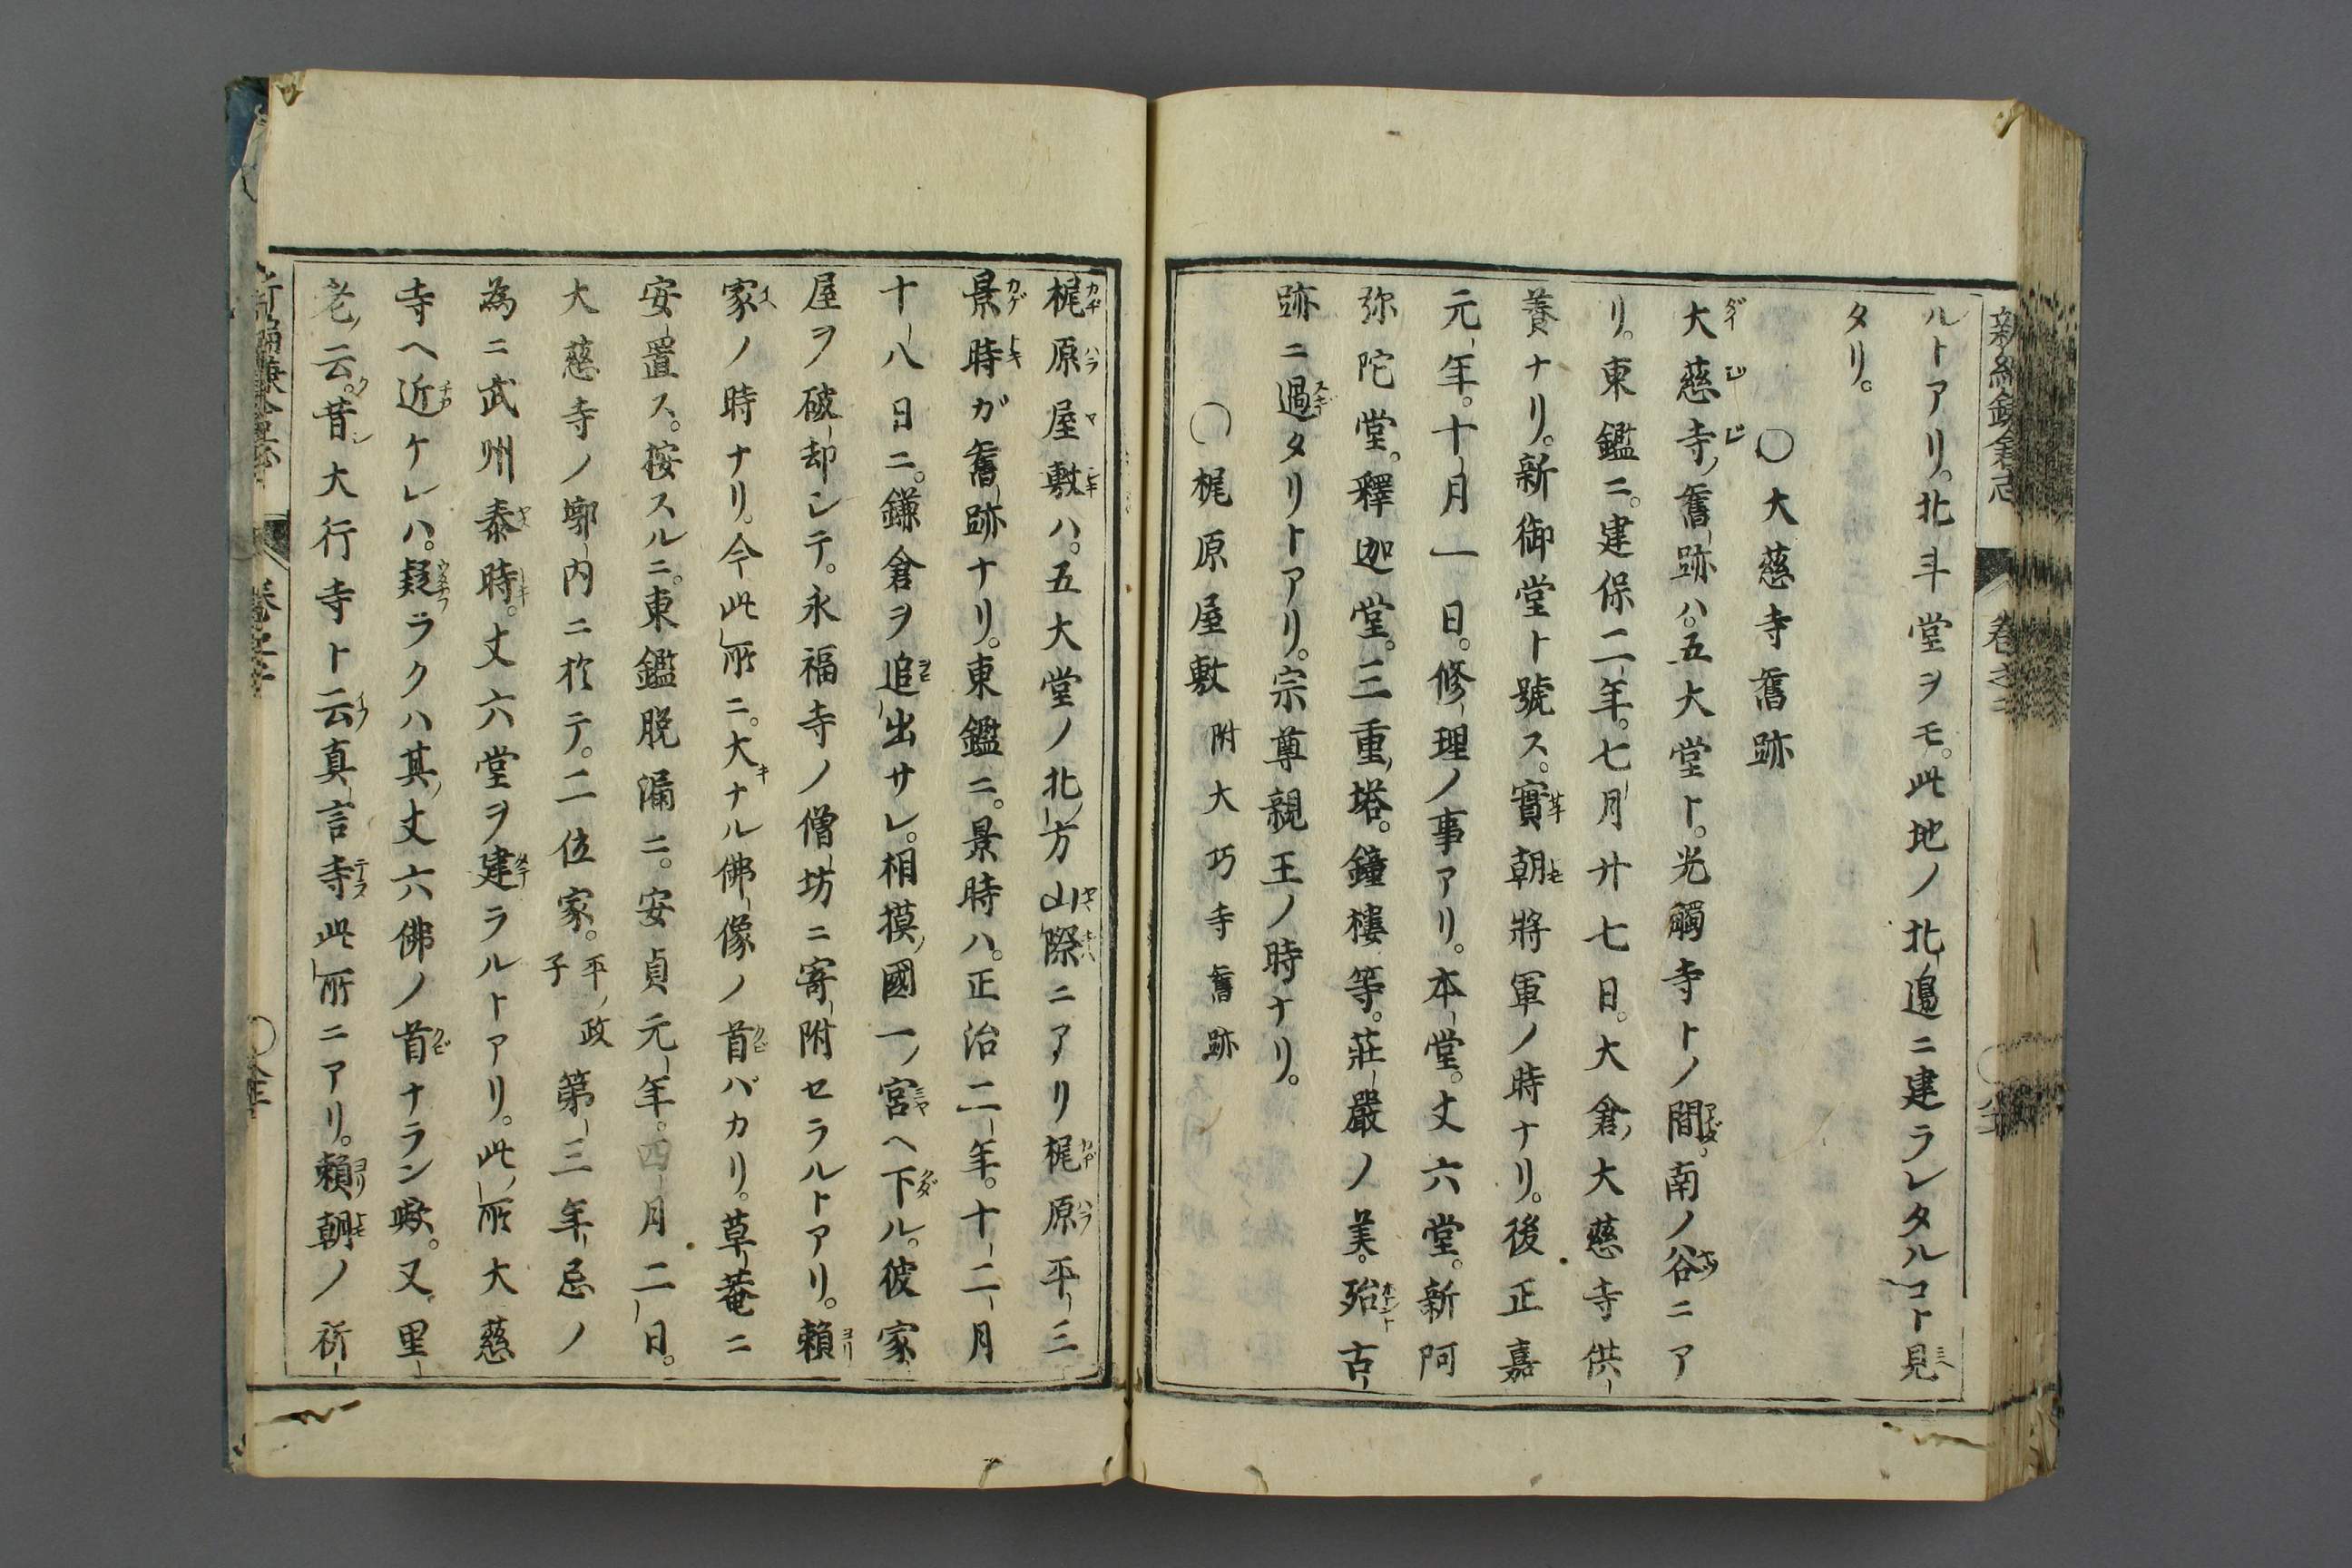 ルトアリ。北斗堂ヲモ。此地ノ北ノ邊ニ建ラレタルコト見
タリ。
○大慈寺舊跡
大慈寺ノ舊跡ハ。五大堂ト。光觸寺トノ間。南ノ谷ニア
リ。東鑑ニ。建保二年。七月廿七日。大倉ノ大慈寺供
養ナリ。新御堂ト號ス。實朝將軍ノ時ナリ。後正嘉
元年。十月一日。修理ノ事アリ。本堂。丈六堂。新阿
弥陀堂。釋迦堂。三重ノ塔。鐘樓等。莊嚴ノ美。殆古
跡ニ過タリトアリ。宗尊親王ノ時ナリ。
○梶原屋敷 附大巧寺舊跡
梶原屋敷ハ。五大堂ノ北ノ方山際ニアリ梶原平三
景時ガ舊跡ナリ。東鑑ニ。景時ハ。正治二年。十二月
十八日ニ。鎌倉ヲ追出サレ。相摸ノ國一ノ宮ヘ下ル。彼家
屋ヲ破却シテ。永福寺ノ僧坊ニ寄附セラルトアリ。頼
家ノ時ナリ。今此所ニ。大ナル佛像ノ首バカリ。草菴ニ
安置ス。按スルニ。東鑑脱漏ニ。安貞元年。四月二日。
大慈寺ノ墎内ニ於テ。二位家。平ノ政子第三年忌ノ
為ニ武州泰時。丈六堂ヲ建ラルトアリ。此所大慈
寺ヘ近ケレハ。疑ラクハ其ノ丈六佛ノ首ナラン歟。又里
老ノ云。昔シ大行寺ト云真言寺此所ニアリ。頼朝ノ祈
新編鎌倉志
卷之二